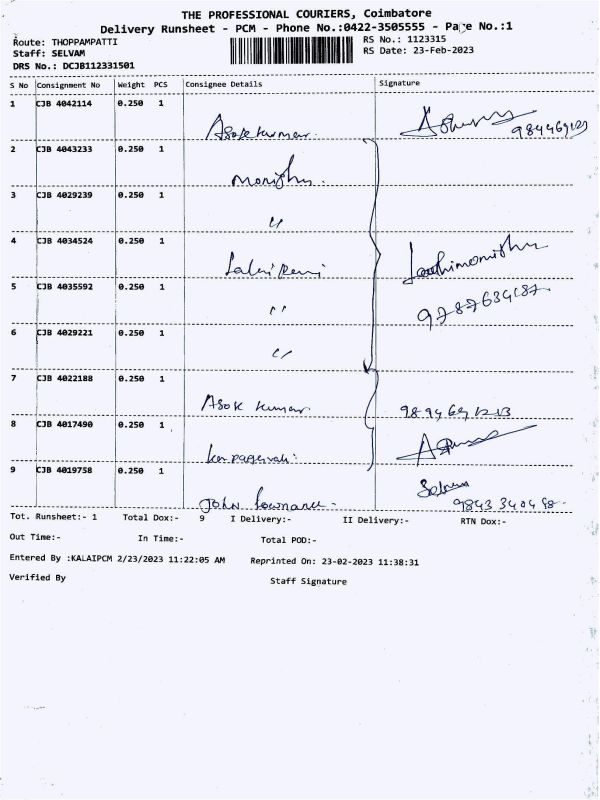 THE PROFESSIONAL COURIERS, Coimbatore
Delivery Runsheet - PCM - Phone No.:0422-3505555 - Page No.:1
Route: THOPPAMPATTI
Staff: SELVAM
DRS No.: DCJB112331501
RS No.: 1123315
RS Date: 23-Feb-2023
S No Consignment No Weight PCS Consignee Details Signature
1 CJB 4042114 0.250 1
Asok kumar.
2 CJB 4043233 0.250 1
3 CJB 4029239 0.250 1
"
4 CJB 4034524 0.250 1
5 CJB 4035592 0.250 1
"
6 CJB 4029221 0.250 1
"
7 CJB 4022188 0.250 1
Asok kumar
8 CJB 4017490 0.250 1
9 CJB 4019758 0.250 1
John
Tot. Runsheet:- 1 Total Dox:- 9 I Delivery:- II Delivery:- RTN Dox:-
Out Time:- In Time:- Total POD:-
Entered By :KALAIPCM 2/23/2023 11:22:05 AM Reprinted On: 23-02-2023 11:38:31
Verified By Staff Signature